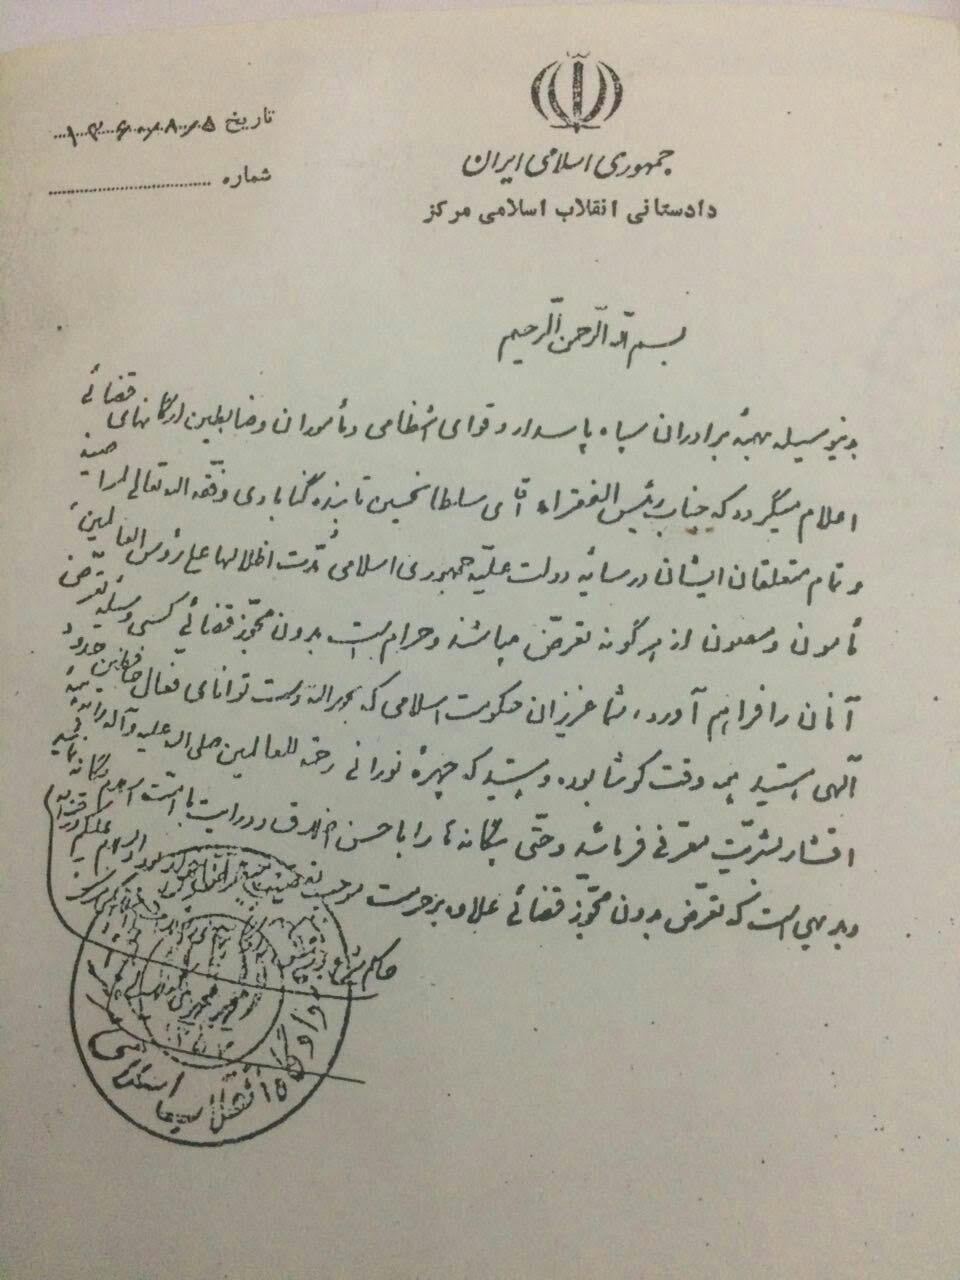 تاریخ ۱۳۶۰/۸/۵
شماره
جمهوری اسلامی ایران
دادستانی انقلاب اسلامی مرکز
بسم الله الرحمن الرحیم
بدینوسیله بهمهٔ برادران سپاه پاسدار و قوای انتظامی و مأموران و ضابطین ارگانهای قضائی
اعلام میگردد که جناب رئیس الفقراء آقای سلطانحسین تابنده گنابادی وفقه اله تعالی لمراضیه
و تمام متعلقان ایشان در سایهٔ دولت علیّه جمهوری اسلامی مُدّت اظلالها علی رؤس العالمین
مأمون و مصون از هرگونه تعرّض میباشند و حرام است بدون مجوّز قضائی کسی وسیلهٔ تعرّض
آنان را فراهم آورد، شما عزیزان حکومت اسلامی که بحمداله دست توانای فعال حافظین حدود
آلهی هستید همه وقت کوشا بوده و هستید که چهرهٔ نورانی رحمة للعالمین صلی اله علیه و آله را
اقشار بشریّت معرفی فرمائید و حتّی بیگانه ها را با حسن اخلاق و درایت
و بدیهی است که تعرّض بدون مجوّز قضائی علاوه بر حرمت موجب
حاکم شرع
دادگاه انقلاب اسلامی